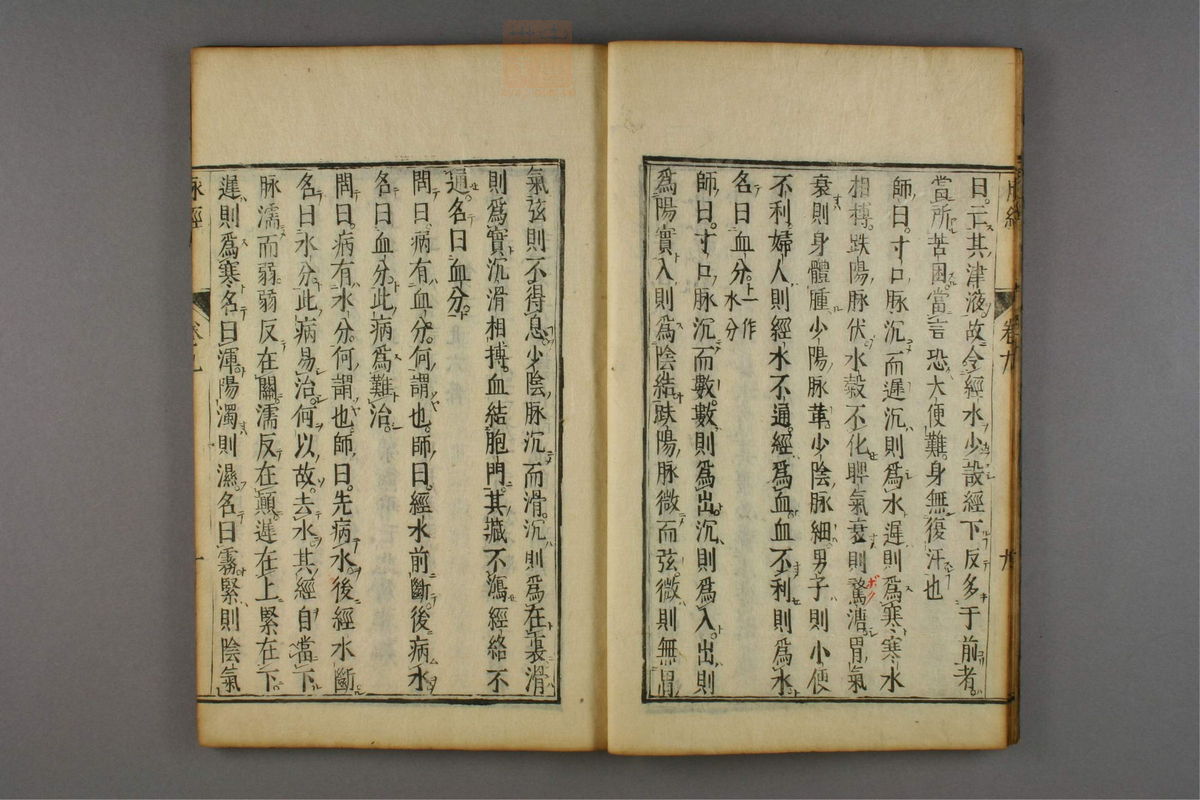 曰亡其津液故令經水少設經下反多于前者
當所苦困當言恐大便難身無復汗也
師曰寸口脈沉而遲沉則爲水遲則爲寒寒水
相搏趺陽脈伏水穀不化脾氣衰則鶩溏胃氣
衰則身體腫少陽脈革少陰脈細男子則小便
不利婦人則經水不通經爲血血不利則爲水
名曰血分一作水分
師曰寸口脈沉而數數則爲出沉則爲入出則
爲陽實入則爲陰結趺陽脈微而弦微則無胃
氣弦則不得息少陰脈沉而滑沉則爲在裏滑
則爲實沉滑相搏血結胞門其藏不瀉經絡不
通名曰血分
問曰病有血分何謂也師曰經水前斷後病水
名曰血分此病爲難治
問曰病有水分何謂也師曰先病水後經水斷
名曰水分此病易治何以故去水其經自當下
脈濡而弱弱反在關濡反在顛遲在上緊在下
遲則爲寒名曰渾陽濁則濕名曰霧緊則陰氣
脉經
卷九